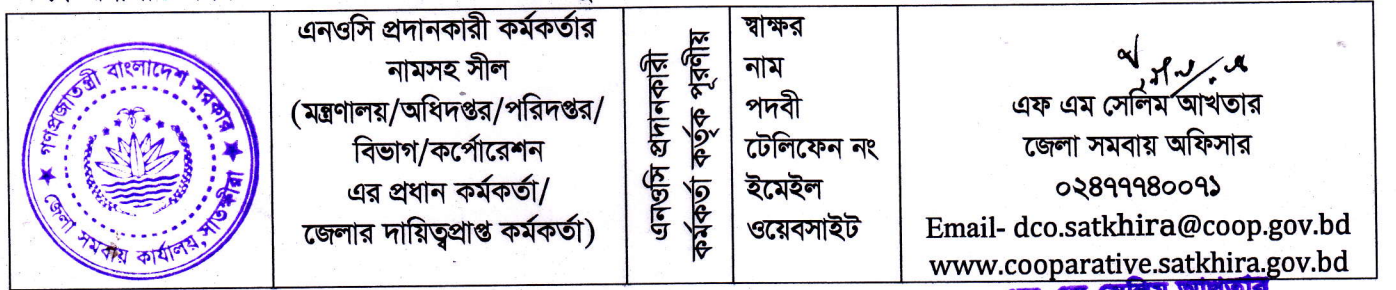 গণপ্রজাতন্ত্রী বাংলাদেশ সরকার
জেলা সমবায় কার্যালয়, সাতক্ষীরা
এনওসি প্রদানকারী কর্মকর্তার
নামসহ সীল
(মন্ত্রণালয়/অধিদপ্তর/পরিদপ্তর/
বিভাগ/কর্পোরেশন
এর প্রধান কর্মকর্তা/
জেলার দায়িত্বপ্রাপ্ত কর্মকর্তা)
এনওসি প্রদানকারী
কর্মকর্তা কর্তৃক পূরণীয়
স্বাক্ষর
নাম
পদবী
টেলিফেন নং
ইমেইল
ওয়েবসাইট
এফ এম সেলিম আখতার
জেলা সমবায় অফিসার
০২৪৭৭৭৪০০৭১
Email- dco.satkhira@coop.gov.bd
www.cooparative.satkhira.gov.bd
এফ এম সেলিম আখতার